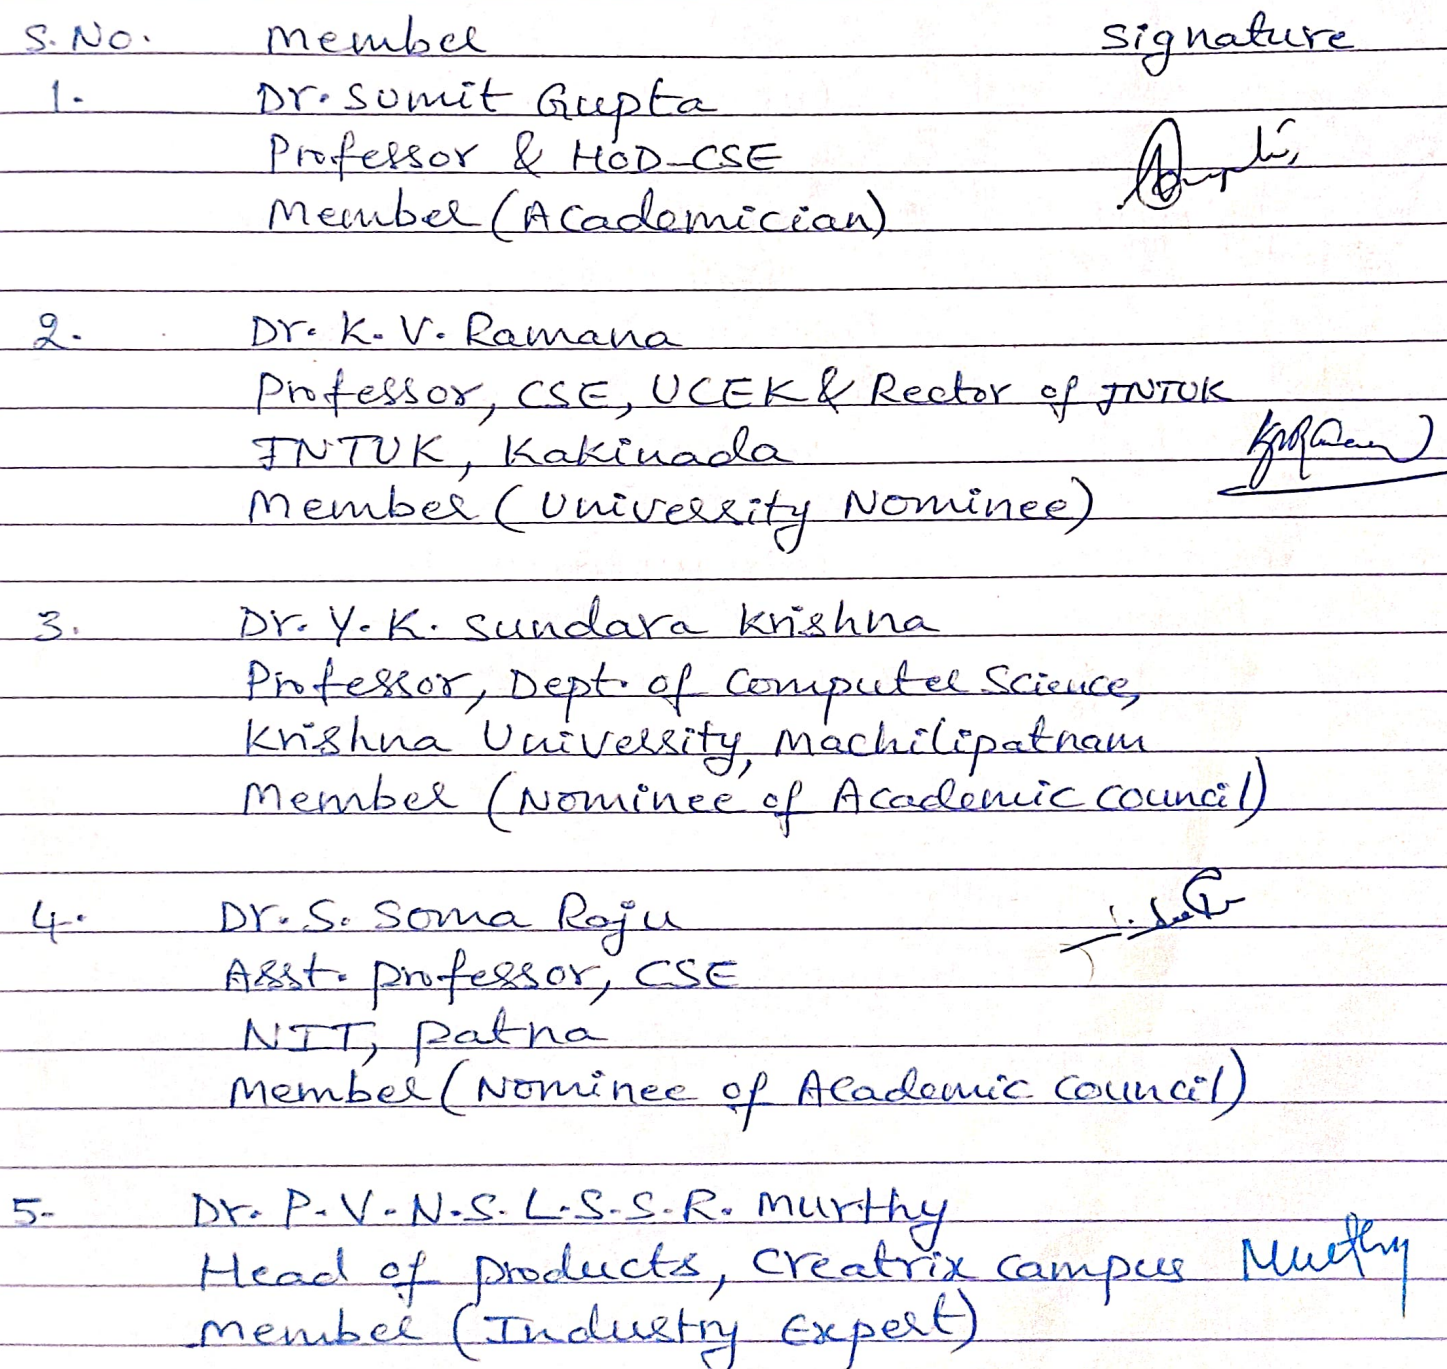 S.No. Member Signature
1. Dr. Sumit Gupta
Professor & HOD-CSE
Member (Academician)
2. Dr. K. V. Ramana
Professor, CSE, UCEK & Rector of JNTUK
JNTUK, Kakinada
Member (University Nominee)
3. Dr. Y. K. Sundara Krishna
Professor, Dept. of Computer Science,
Krishna University, Machilipatnam
Member (Nominee of Academic Council)
4. Dr. S. Soma Raju
Asst. Professor, CSE
NIT, Patna
Member (Nominee of Academic Council)
5. Dr. P. V. N. S. L. S. S. R. Murthy
Head of Products, Creatrix Campus Murthy
Member (Industry Expert)